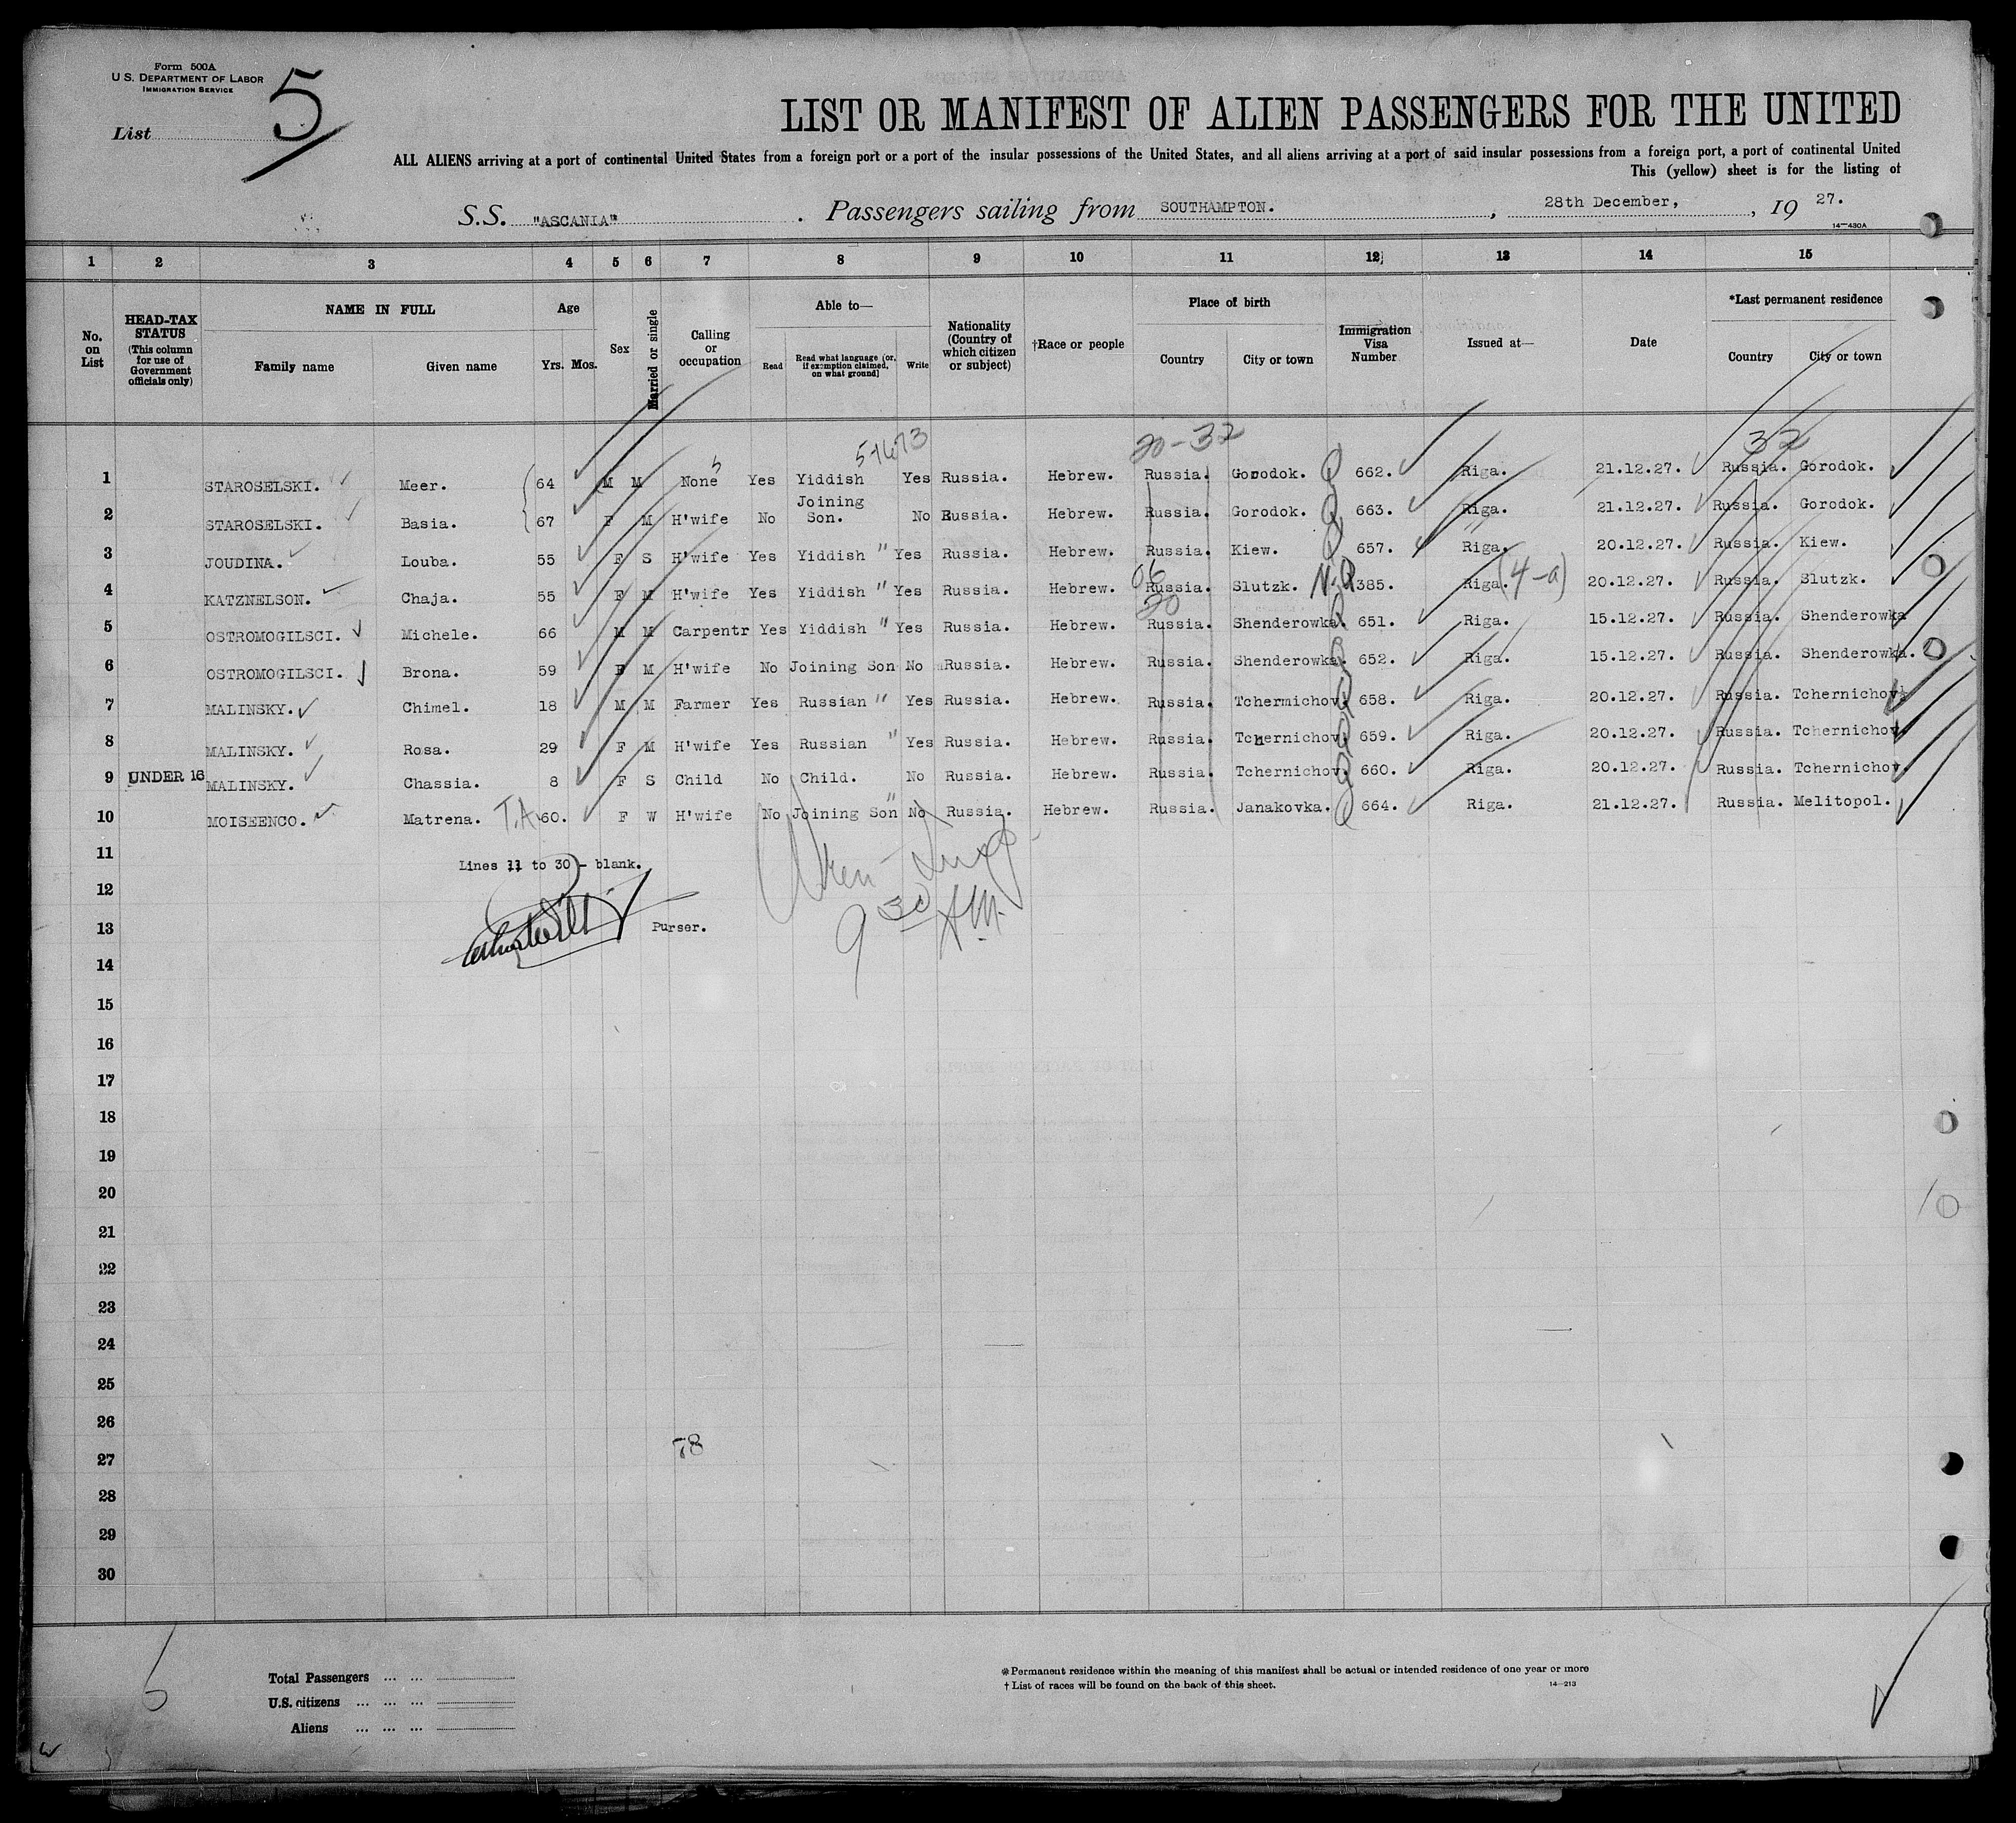 Form 500A
U S. DEPARTMENT OF LABOR
IMMIGRATION SERVICE
List 5
LIST OR MANIFEST OF ALIEN PASSENGERS FOR THE UNITED
ALL ALIENS arriving at a port of continental United States from a foreign port or a port of the insular possessions of the United States, and all aliens arriving at a port of said insular possessions from a foreign port, a port of continental United
This (yellow) sheet is for the listing of
S.S. "ASCANIA" . Passengers sailing from SOUTHAMPTON. , 28th December, , 19 27.
14—430A
1 2 3 4 5 6 7 8 9 10 11 12 13 14 15
No. on List
HEAD-TAX STATUS (This column for use of Government officials only)
NAME IN FULL
Family name Given name
Age
Yrs. Mos.
Sex
Married or single
Calling or occupation
Able to—
Read Read what language (or, if exemption claimed, on what ground) Write
Nationality (Country of which citizen or subject)
†Race or people
Place of birth
Country City or town
Immigration Visa Number
Issued at—
Date
*Last permanent residence
Country City or town
20-32 32
1 STAROSELSKI. Meer. 64 M M None Yes Yiddish Yes Russia. Hebrew. Russia. Gorodok. Q 662. Riga. 21.12.27. Russia. Gorodok.
2 STAROSELSKI. Basia. 67 F M H'wife No Joining Son. No Russia. Hebrew. Russia. Gorodok. Q 663. Riga. 21.12.27. Russia. Gorodok.
3 JOUDINA. Louba. 55 F S H'wife Yes Yiddish " Yes Russia. Hebrew. Russia. Kiew. Q 657. Riga. 20.12.27. Russia. Kiew.
4 KATZNELSON. Chaja. 55 F M H'wife Yes Yiddish " Yes Russia. Hebrew. 06 Russia. Slutzk. N.Q 385. Riga. (4-a) 20.12.27. Russia. Slutzk.
20
5 OSTROMOGILSCI. Michele. 66 M M Carpentr Yes Yiddish " Yes Russia. Hebrew. Russia. Shenderowka. Q 651. Riga. 15.12.27. Russia. Shenderowka
6 OSTROMOGILSCI. Brona. 59 F M H'wife No Joining Son No Russia. Hebrew. Russia. Shenderowka. Q 652. Riga. 15.12.27. Russia. Shenderowka.
7 MALINSKY. Chimel. 18 M M Farmer Yes Russian " Yes Russia. Hebrew. Russia. Tchermichov. Q 658. Riga. 20.12.27. Russia. Tchernichov.
8 MALINSKY. Rosa. 29 F M H'wife Yes Russian " Yes Russia. Hebrew. Russia. Tchernichov. Q 659. Riga. 20.12.27. Russia. Tchernichov.
9 UNDER 16 MALINSKY. Chassia. 8 F S Child No Child. No Russia. Hebrew. Russia. Tchernichov. Q 660. Riga. 20.12.27. Russia. Tchernichov.
10 MOISEENCO. Matrena. T.A 60. F W H'wife No Joining Son " No Russia. Hebrew. Russia. Janakovka. Q 664. Riga. 21.12.27. Russia. Melitopol.
11 Lines 11 to 30 - blank.
12
13 Purser. 9 30 AM.
14
15
16
17
18
19
20 10
21
22
23
24
25
26
27 78
28
29
30
Total Passengers ... ...
U.S. citizens ... ... ...
Aliens ... ... ...
*Permanent residence within the meaning of this manifest shall be actual or intended residence of one year or more
† List of races will be found on the back of this sheet. 14—213